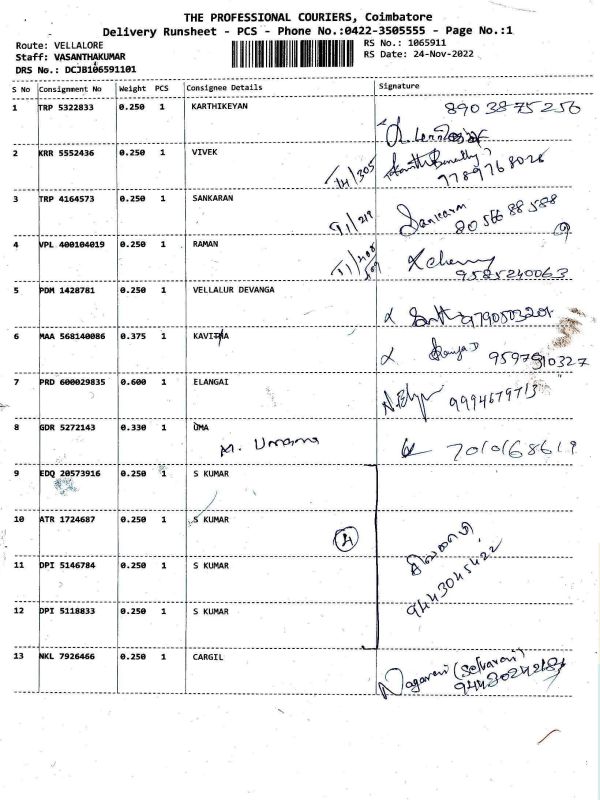 THE PROFESSIONAL COURIERS, Coimbatore
Delivery Runsheet - PCS - Phone No.:0422-3505555 - Page No.:1
Route: VELLALORE
RS No.: 1065911
Staff: VASANTHAKUMAR
RS Date: 24-Nov-2022
DRS No.: DCJB106591101
S No Consignment No Weight PCS Consignee Details Signature
1 TRP 5322833 0.250 1 KARTHIKEYAN 8903875250
2 KRR 5552436 0.250 1 VIVEK
T4/305 9789768026
3 TRP 4164573 0.250 1 SANKARAN Sankaran
9/219 8056688588
4 VPL 400104019 0.250 1 RAMAN
9585240063
5 PDM 1428781 0.250 1 VELLALUR DEVANGA
9790503201
6 MAA 568140086 0.375 1 KAVITHA
9597910327
7 PRD 600029835 0.600 1 ELANGAI
9994679713
8 GDR 5272143 0.330 1 UMA
M. Umama 7010168619
9 EDQ 20573916 0.250 1 S KUMAR
10 ATR 1724687 0.250 1 S KUMAR
4
11 DPI 5146784 0.250 1 S KUMAR
9443045422
12 DPI 5118833 0.250 1 S KUMAR
13 NKL 7926466 0.250 1 CARGIL
Nagaveni (Selvarani)